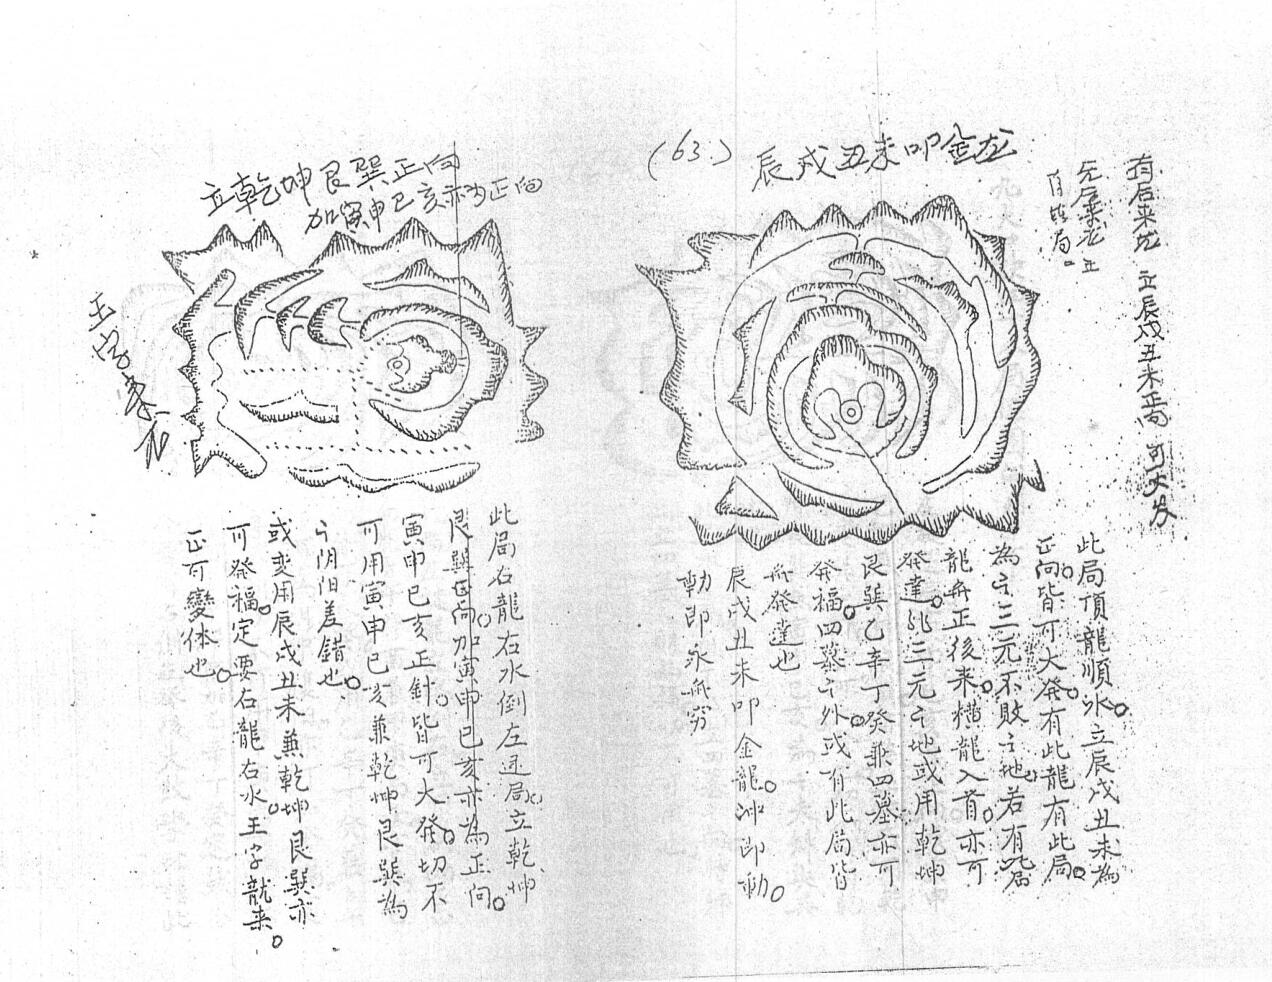 (63.)
辰戌丑未叩金龙
有后来龙 立辰戌丑未正向 可大发
无后来龙立
此局頂龍順水立辰戌丑未為
正向皆可大發有此龍有此局
為之三元不敗之地若有
龍舟正後来橫龍入首亦可
發達非三元之地或用乾坤
艮巽乙辛丁癸兼四墓亦可
發福四墓之外或有此局皆
無發達也
辰戌丑未叩金龍冲即動
動即永無窮
立乾坤艮巽正向
加寅申巳亥亦为正向
王字来龙
此局右龍右水倒左逆局立乾坤
艮巽正向加寅申巳亥亦為正向
寅申巳亥正針皆可大發切不
可用寅申巳亥兼乾坤艮巽為
之阴阳差錯也
或变用辰戌丑未兼乾坤艮巽亦
可發福定要右龍右水王字龍来
正可變体也